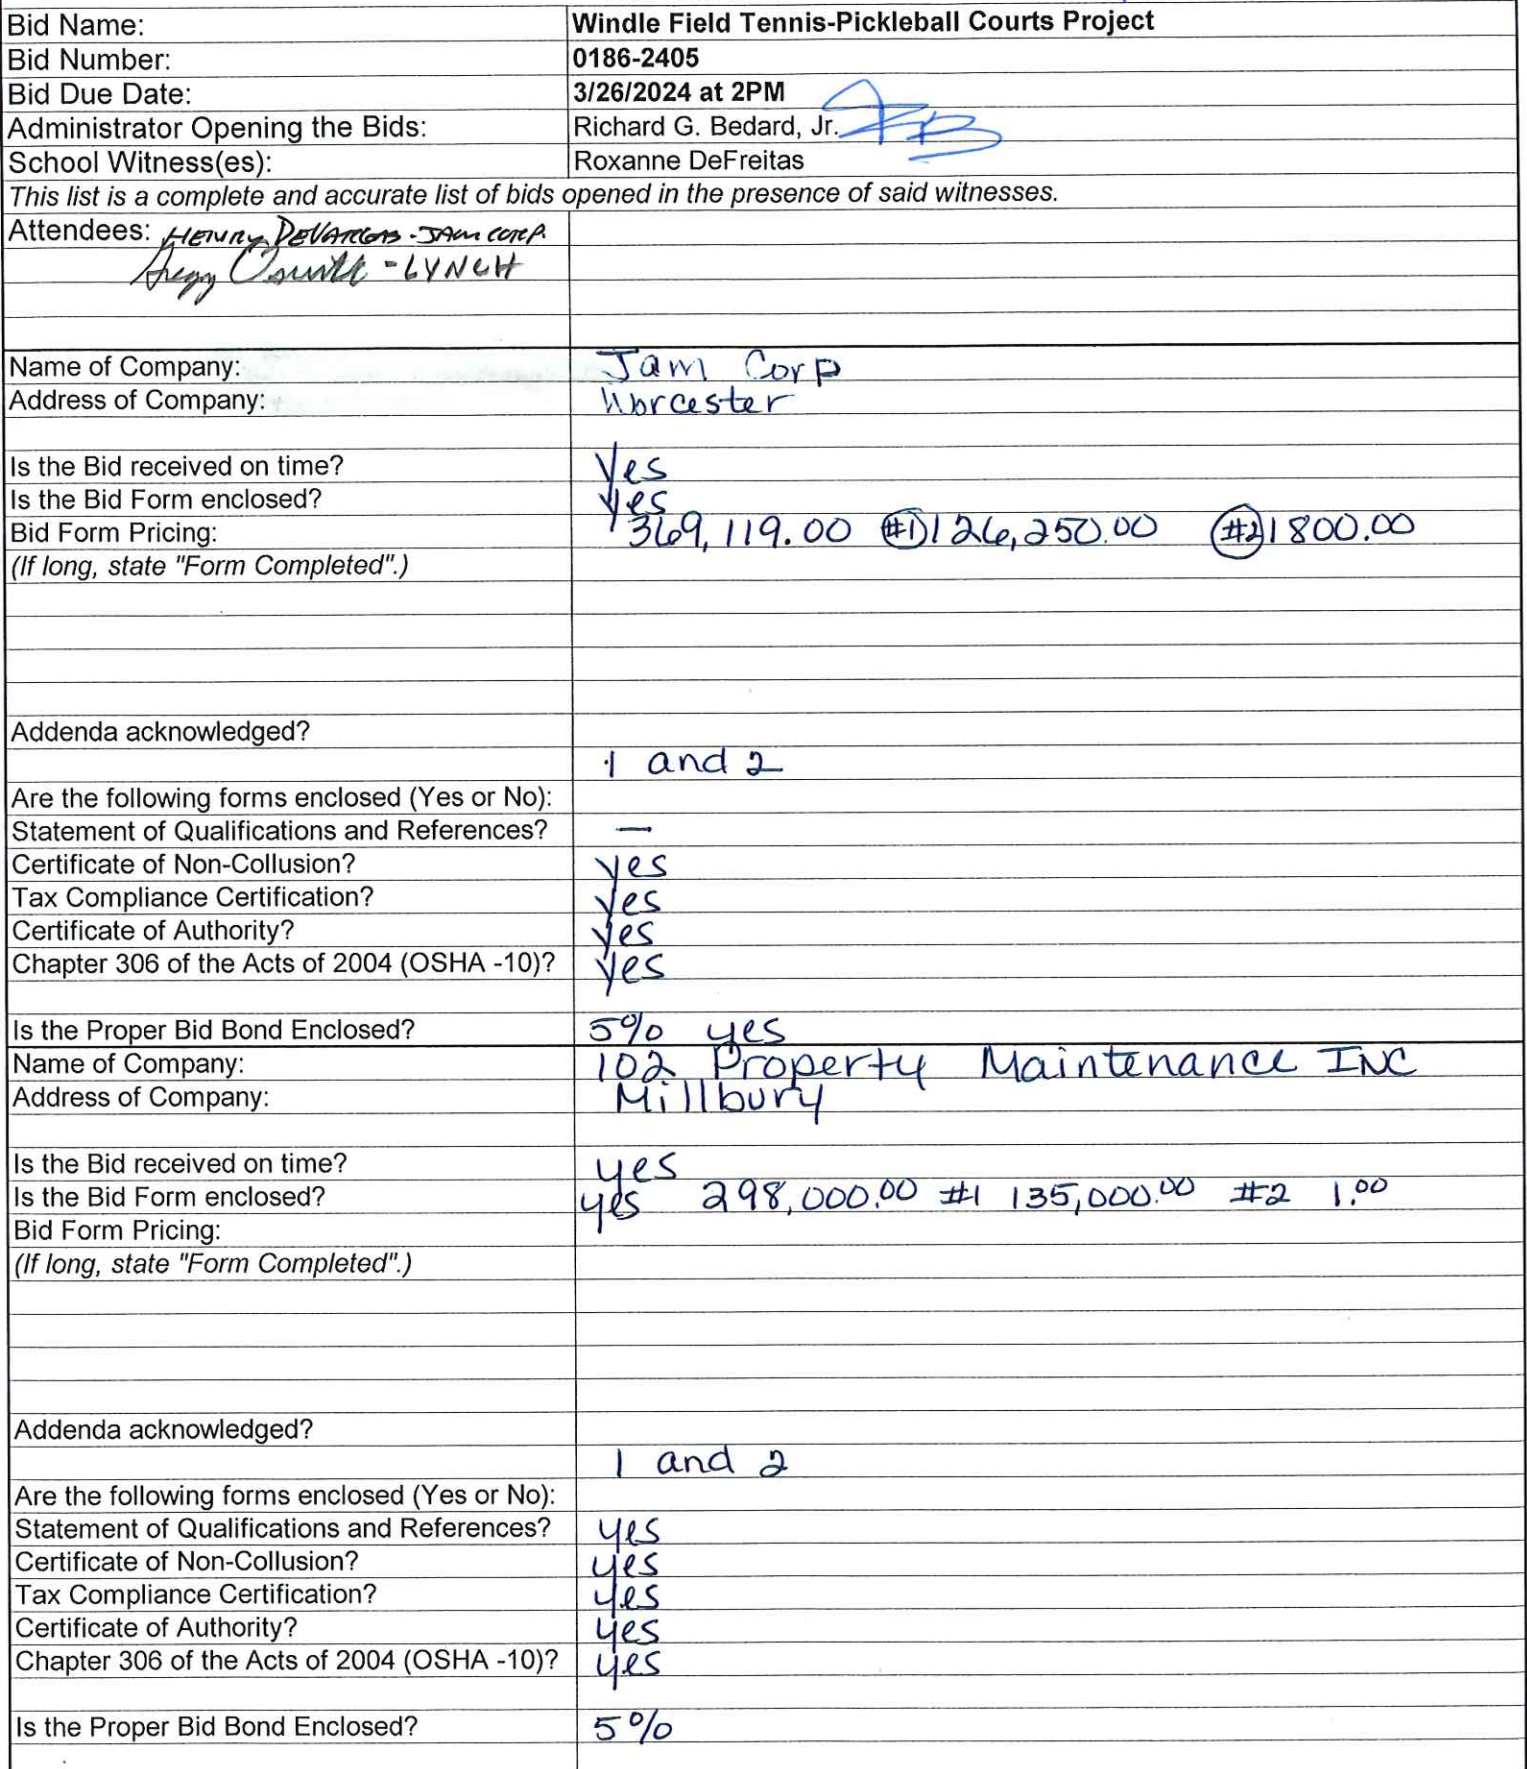 Bid Name: Windle Field Tennis-Pickleball Courts Project
Bid Number: 0186-2405
Bid Due Date: 3/26/2024 at 2PM
Administrator Opening the Bids: Richard G. Bedard, Jr.
School Witness(es): Roxanne DeFreitas
This list is a complete and accurate list of bids opened in the presence of said witnesses.
Attendees: HENRY DEVARGAS - JAM CORP.
Gregg - LYNCH
Name of Company: Jam Corp
Address of Company: Worcester
Is the Bid received on time? Yes
Is the Bid Form enclosed? yes
Bid Form Pricing: 369,119.00 #1 126,250.00 #2 1800.00
(If long, state "Form Completed".)
Addenda acknowledged?
1 and 2
Are the following forms enclosed (Yes or No):
Statement of Qualifications and References? —
Certificate of Non-Collusion? yes
Tax Compliance Certification? yes
Certificate of Authority? yes
Chapter 306 of the Acts of 2004 (OSHA -10)? yes
Is the Proper Bid Bond Enclosed? 5% yes
Name of Company: 102 Property Maintenance INC
Address of Company: Millbury
Is the Bid received on time? yes
Is the Bid Form enclosed? yes 298,000.00 #1 135,000.00 #2 1.00
Bid Form Pricing:
(If long, state "Form Completed".)
Addenda acknowledged?
1 and 2
Are the following forms enclosed (Yes or No):
Statement of Qualifications and References? yes
Certificate of Non-Collusion? yes
Tax Compliance Certification? yes
Certificate of Authority? yes
Chapter 306 of the Acts of 2004 (OSHA -10)? yes
Is the Proper Bid Bond Enclosed? 5%